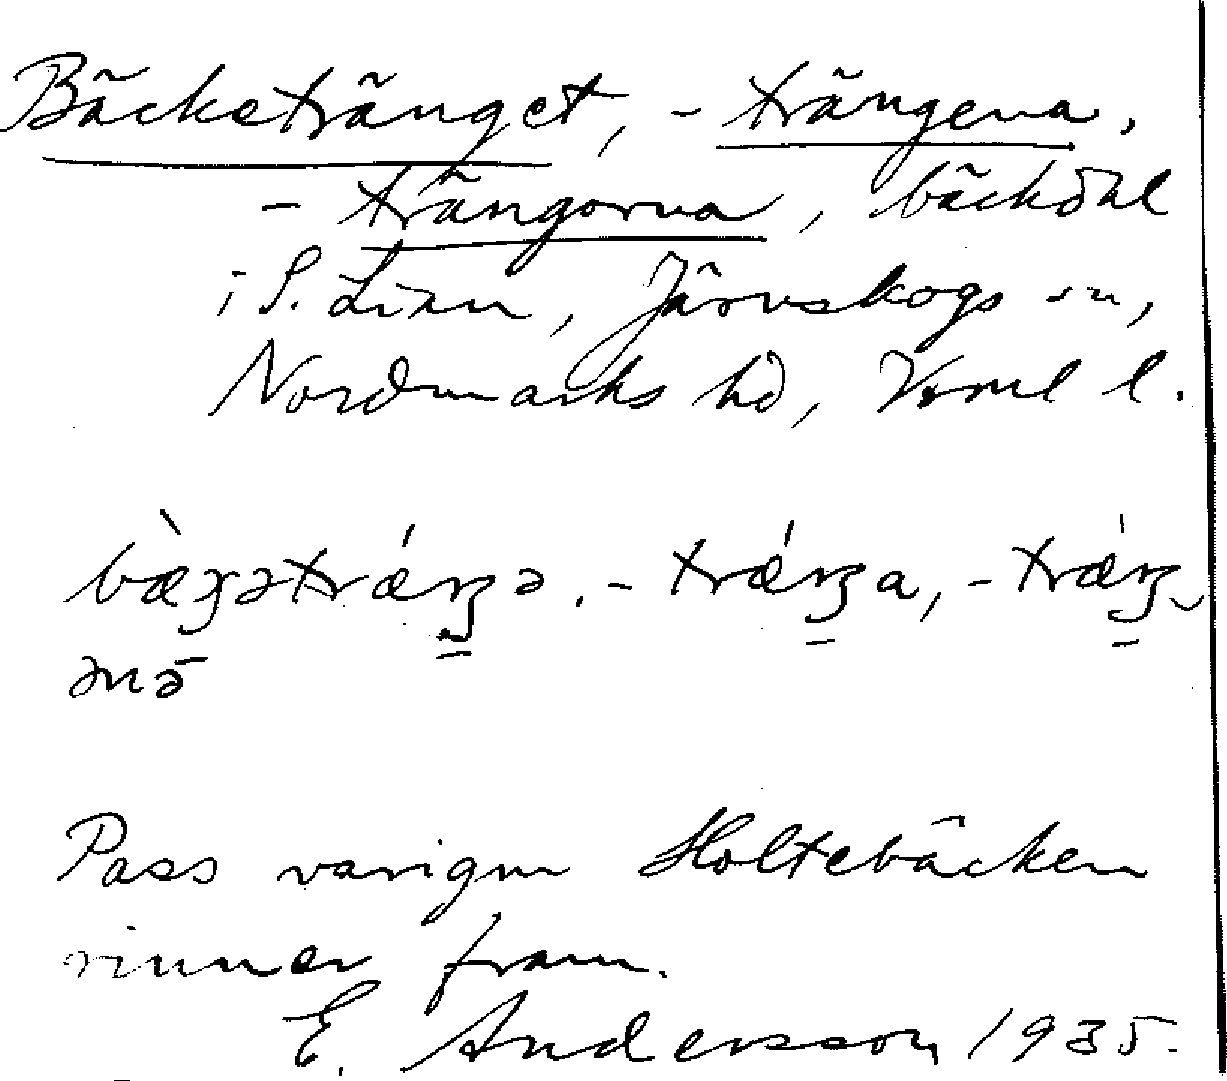 Bäcketränget, -trängena,
- trängorna, bäckdal
i S. Lian, Järnskogs sn,
Nordmarks hd, Vrml l.
Pass varigm Holtebäcken
rinner fram.
E. Andersson 1935.